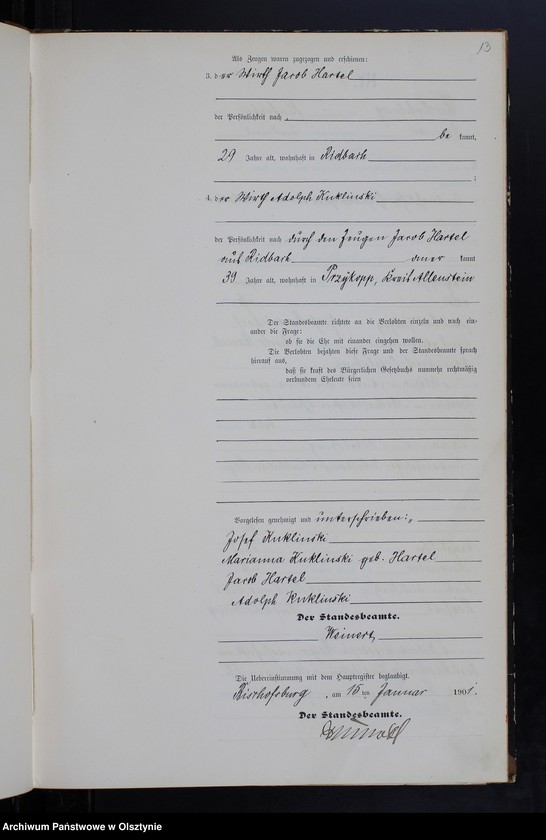 13
Als Zeugen waren zugezogen und erschienen:
3. der Wirth Jacob Hartel
der Persönlichkeit nach
be kannt,
29 Jahre alt, wohnhaft in Ridbach
;
4. der Wirth Adolph Kuklinski
der Persönlichkeit nach durch den Zeugen Jacob Hartel
aus Ridbach aner kannt
39 Jahre alt, wohnhaft in Przykopp, Kreis Allenstein
Der Standesbeamte richtete an die Verlobten einzeln und nach ein-
ander die Frage:
ob sie die Ehe mit einander eingehen wollen.
Die Verlobten bejahten diese Frage und der Standesbeamte sprach
hierauf aus,
daß sie kraft des Bürgerlichen Gesetzbuchs nunmehr rechtmäßig
verbundene Eheleute seien
Vorgelesen, genehmigt und unterschrieben:
Josef Kuklinski
Marianna Kuklinski geb. Hartel
Jacob Hartel
Adolph Kuklinski
Der Standesbeamte.
Weinert
Die Uebereinstimmung mit dem Hauptregister beglaubigt.
Bischofsburg, am 15ten Januar 1901.
Der Standesbeamte.
Archiwum Państwowe w Olsztynie